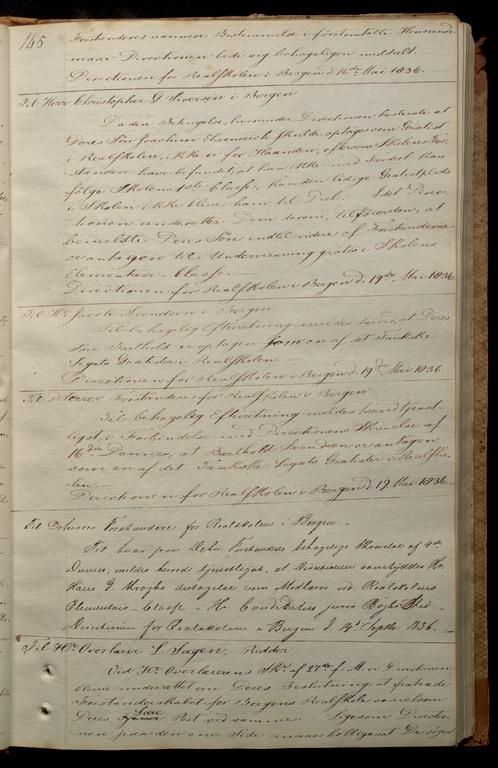 145
Forstanderes nærmere Bestemmelse i førstomtalte Henseende
maae Directionen bede sig behageligen meddeelt.
Directionen for Realskolen i Bergen d. 16de Mai 1836.
Til Herr Christopher G. Siversen i Bergen
Da den Betingelse, hvorunder Directionen bestemte at
Deres Søn Joachim Ehrenreich skulde optages som Gratist
i Realskolen, ikke er for Haanden, eftersom Skolens For-
standere have befundet, at han ikke med Fordeel kan
følge Skolens 1ste Classe, kan den ledige Gratistplads
i Skolen ikke blive ham til Deel. Idet Direc-
tionen underretter Dem derom, tilføies, at
bemeldte Deres Søn indtil videre af Forstanderne
er antagen til Underviisning gratis i Skolens
Elementair-Classe.
Directionen for Realskolen i Bergen d. 19de Mai 1836.
Til Hr. Jacob Svendsen i Bergen
Til behagelig Efterretning meldes herved, at Deres
Søn Berthold er optagen som en af det Frankiske
Legats Gratister i Realskolen.
Directionen for Realskolen i Bergen d. 19de Mai 1836.
Til D'Herrer Forstandere for Realskolen i Bergen
Til behagelig Efterretning meldes herved tjenst-
ligst, i Forbindelse med Directionens Skrivelse af
16de Dennes, at Berthold Svendsen er antagen
som en af det Frankiske Legats Gratister i Realsko-
len.
Directionen for Realskolen i Bergen d. 19 Mai 1836.
Til D'Herrer Forstandere for Realskolen i Bergen.
Til Svar paa D'Hrr. Forstanderes behagelige Skrivelse af 4de
Dennes, meldes herved tjenstligst, at Directionen samtykker Hr.
Hans d. Kroghs Antagelse som Medlærer ved Realskolens
Elementair-Classe Hr. Candidatus juris
Directionen for Realskolen i Bergen d. 14d Septbr. 1836.
Til Hr. Overlærer L. Sagen, Ridder
Ved Hr. Overlærerens Skr. af 27de f. M. er Directionen
bleven underrettet om Deres Beslutning, at fratræde
Forstanderskabet for Bergens Realskole samt som
Deres Lærer Post ved samme. Ligesom Directio-
nen paa den ene Side maae beklage, at De søger